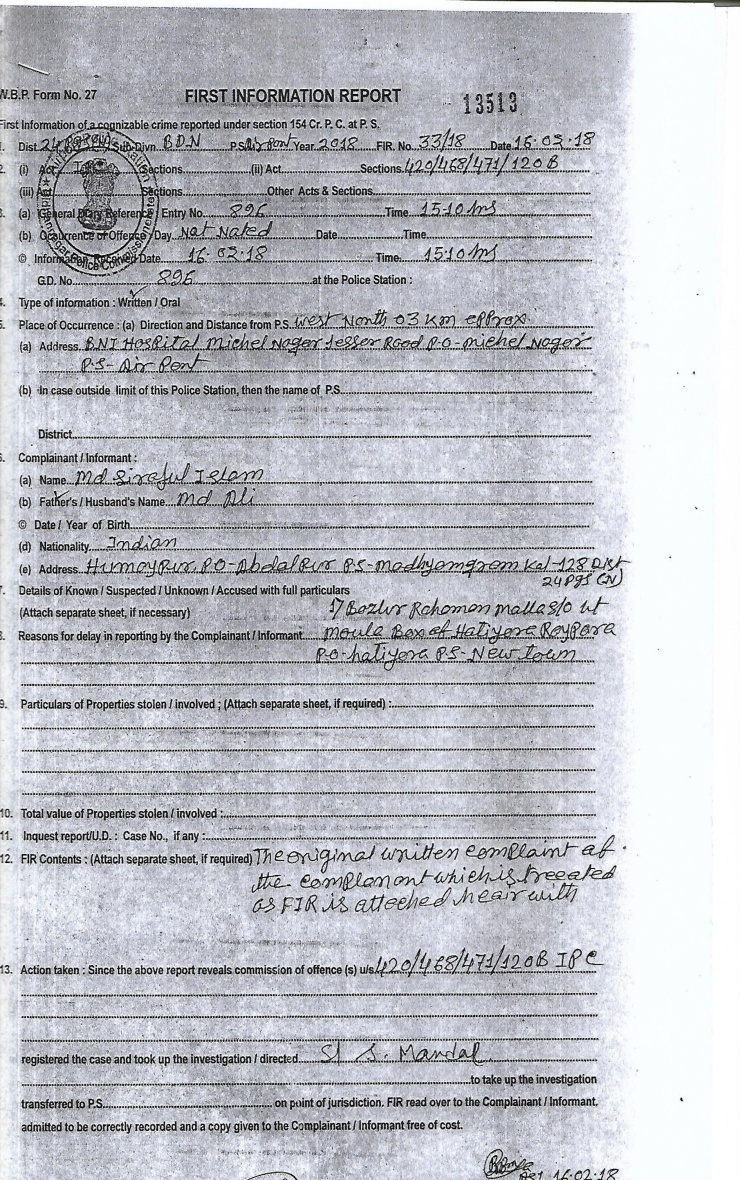 W.B.P. Form No. 27 FIRST INFORMATION REPORT 13513
First Information of a cognizable crime reported under section 154 Cr. P. C. at P. S.
1. Dist. 24 Sub-Divn. BDN P.S. Air Port Year 2018 FIR. No. 33/18 Date 16.03.18
2. (i) Act Sections (ii) Act Sections 420/468/471/120B
(iii) Act Sections Other Acts & Sections
3. (a) General Diary Reference: Entry No. 896 Time 15.10 hrs
(b) Occurrence of Offence: Day Not Noted Date Time
© Information Received Date 16.03.18 Time: 15.10 hrs
G.D. No. 896 at the Police Station :
4. Type of information : Written / Oral
5. Place of Occurrence : (a) Direction and Distance from P.S. West North 03 Km approx
(a) Address BNI Hospital Michel Nagar Jesser Road P.O- michel Nagar
P.S- Air Port
(b) In case outside limit of this Police Station, then the name of P.S.
District
6. Complainant / Informant :
(a) Name Md Sirajul Islam
(b) Father's / Husband's Name Md Ali
© Date / Year of Birth
(d) Nationality Indian
(e) Address Humaypur P.O- Abdalpur P.S- madhyamgram Kol-128 Dist
24 Pgs (N)
7. Details of Known / Suspected / Unknown / Accused with full particulars
(Attach separate sheet, if necessary) 1) Bazlur Rahoman molla s/o Lt
8. Reasons for delay in reporting by the Complainant / Informant moula Box of Hatiyara Roypara
P.O- hatiyara P.S- New town
9. Particulars of Properties stolen / involved ; (Attach separate sheet, if required) :
10. Total value of Properties stolen / involved :
11. Inquest report/U.D. : Case No., if any :
12. FIR Contents : (Attach separate sheet, if required) The original written complaint of
the complanant which is treeated
as FIR is atteched hearwith
13. Action taken : Since the above report reveals commission of offence (s) u/s 420/468/471/120B IPC
registered the case and took up the investigation / directed SI S. Mandal
to take up the investigation
transferred to P.S. on point of jurisdiction. FIR read over to the Complainant / Informant,
admitted to be correctly recorded and a copy given to the Complainant / Informant free of cost.
16.02.18